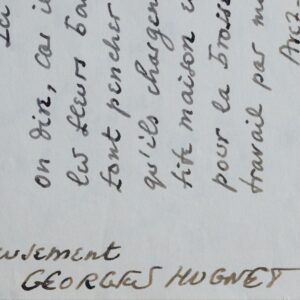 La
on dira, car i
les fleurs ba
font pencher
qu'ils chargen
tite maison e
pour la brosse
travail par m
Paez
eusement
GEORGES HUGNET